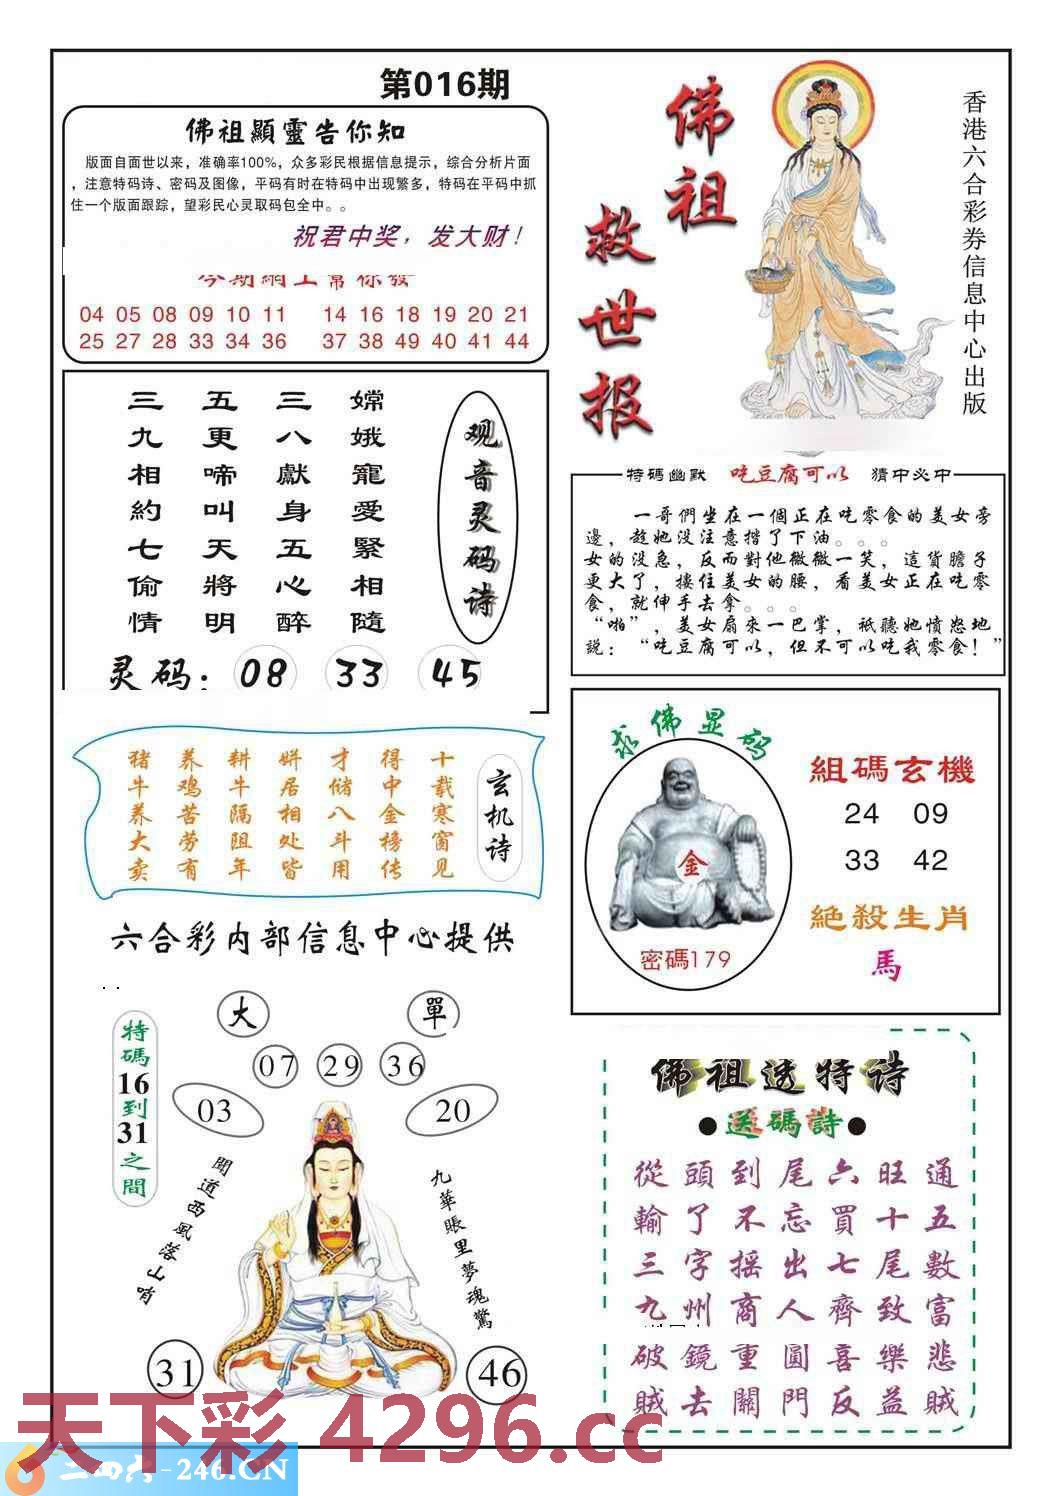 第016期
佛祖顯靈告你知
版面自面世以来，准确率100%，众多彩民根据信息提示，综合分析片面
，注意特码诗、密码及图像，平码有时在特码中出现繁多，特码在平码中抓
住一个版面跟踪，望彩民心灵取码包全中。。
祝君中奖，发大财！
今期網上幫你發
04 05 08 09 10 11 14 16 18 19 20 21
25 27 28 33 34 36 37 38 49 40 41 44
佛祖
救世报
香港六合彩券信息中心出版
观音灵码诗
嫦娥寵愛緊相隨
三八獻身五心醉
五更啼叫天將明
三九相約七偷情
灵码：08 33 45
特碼幽默 吃豆腐可以 猜中必中
一哥們坐在一個正在吃零食的美女旁
邊，趁她没注意揩了下油。。。
女的没急，反而對他微微一笑，這貨膽子
更大了，摟住美女的腰，看美女正在吃零
食，就伸手去拿。。。
“啪”，美女扇來一巴掌，祇聽她憤怒地
説：“吃豆腐可以，但不可以吃我零食！”
玄机诗
十载寒窗见
得中金榜传
才储八斗用
姘居相处皆
耕牛隔阻年
养鸡苦劳有
猪牛养大卖
求佛显码
金
密碼179
組碼玄機
24 09
33 42
絕殺生肖
馬
六合彩内部信息中心提供
特碼16到31之間
大 單
07 29 36
03 20
聞道西風落山哨
九華賬里夢魂驚
31 46
佛祖透特诗
●送碼詩●
從頭到尾六旺通
輸了不忘買十五
三字摇出七尾數
九州商人齊致富
破鏡重圓喜樂悲
賊去關門反益賊
天下彩 4296.cc
二四六-246.CN